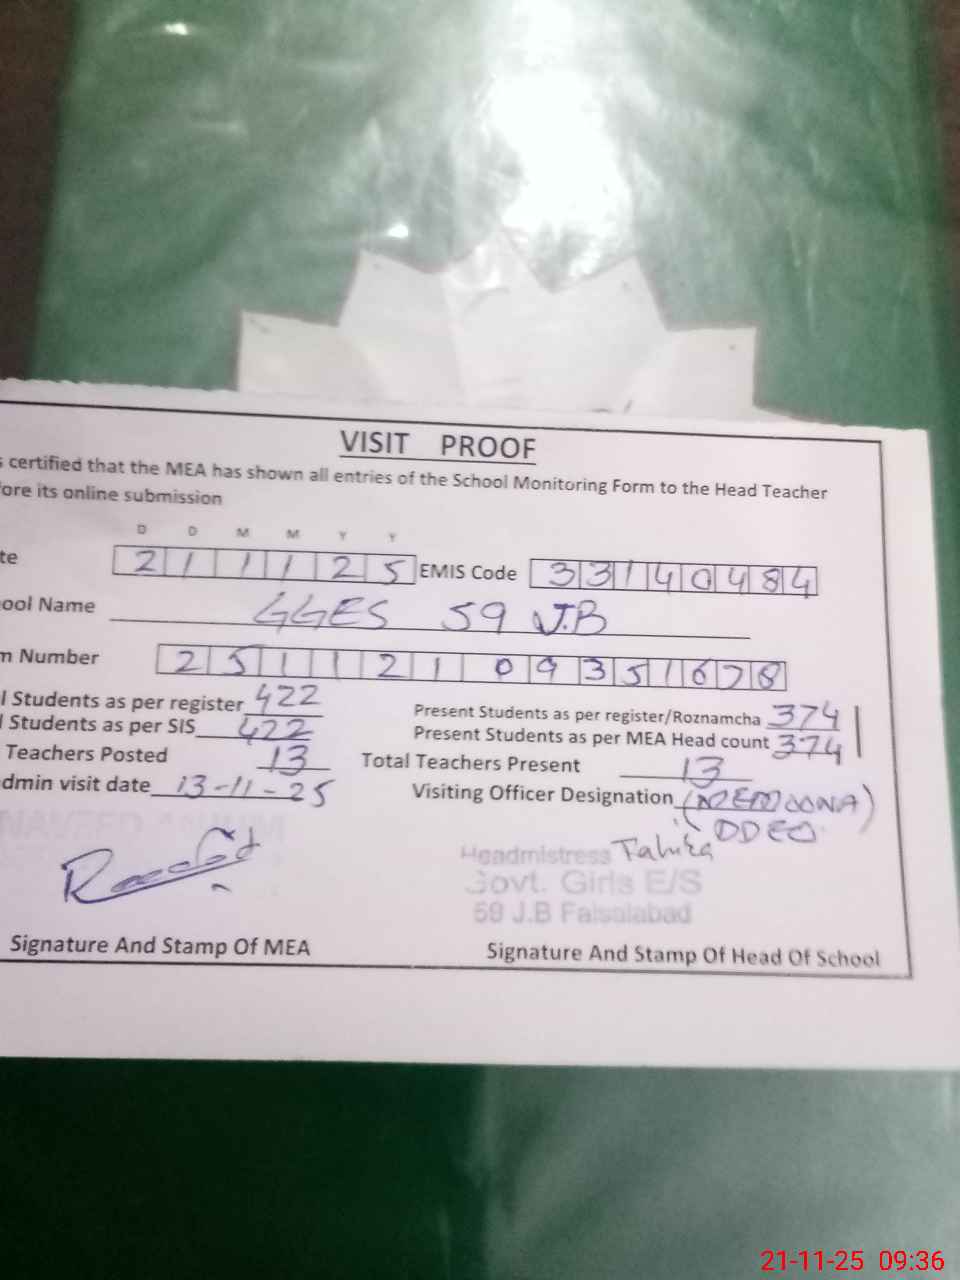 VISIT PROOF
s certified that the MEA has shown all entries of the School Monitoring Form to the Head Teacher
fore its online submission
D D M M Y Y
te 2 1 1 1 2 5 EMIS Code 3 3 1 4 0 4 8 4
ool Name GGES 59 J.B
m Number 2 5 1 1 2 1 0 9 3 5 1 6 7 8
l Students as per register 422 Present Students as per register/Roznamcha 374
l Students as per SIS 422 Present Students as per MEA Head count 374
Teachers Posted 13 Total Teachers Present 13
dmin visit date 13-11-25 Visiting Officer Designation
DDEO
Headmistress Tahira
Govt. Girls E/S
59 J.B Faisalabad
Signature And Stamp Of MEA Signature And Stamp Of Head Of School
21-11-25 09:36